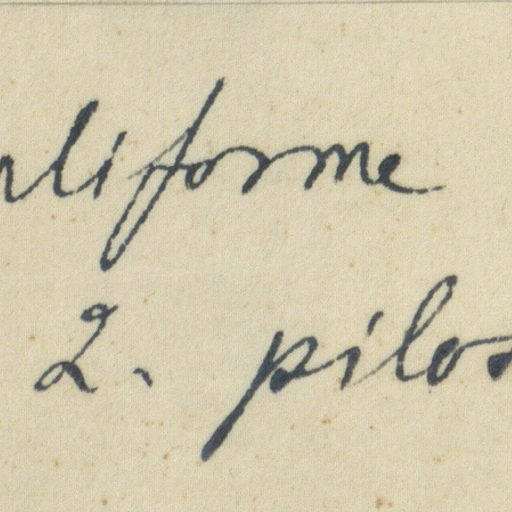 liforme
2. pilos